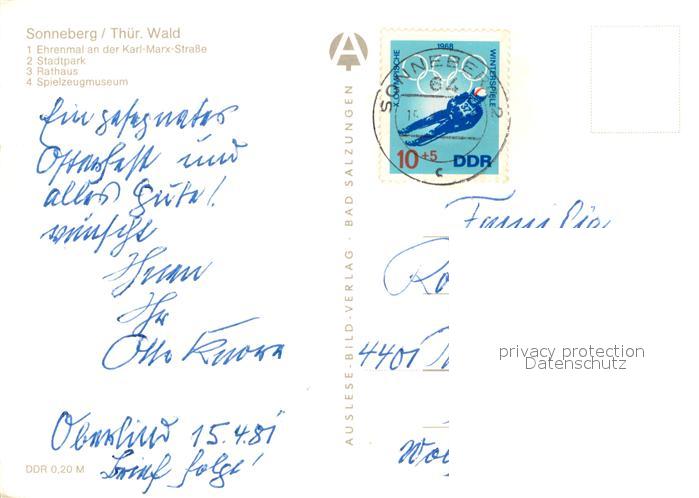 Sonneberg / Thür. Wald
1 Ehrenmal an der Karl-Marx-Straße
2 Stadtpark
3 Rathaus
4 Spielzeugmuseum
Ein gesegnetes
Osterfest und
alles Gute!
wünscht
Ihnen
Ihr
Otto Knorr
Oberlind 15.4.81
Brief folgt!
DDR 0,20 M
AUSLESE-BILD-VERLAG · BAD SALZUNGEN
1968
X. OLYMPISCHE
WINTERSPIELE
10+5 DDR
SONNEBERG 2
64
c
Familie
Ro
4401
privacy protection
Datenschutz